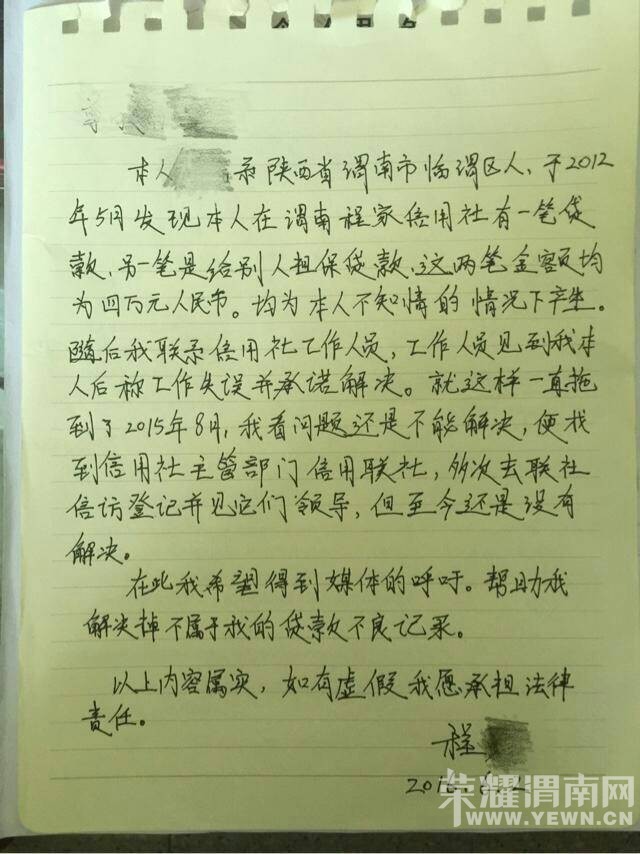 本人 系陕西省渭南市临渭区人，于2012
年5月发现本人在渭南程家信用社有一笔贷
款，另一笔是给别人担保贷款，这两笔金额均
为四万元人民币。均为本人不知情的情况下产生。
随后我联系信用社工作人员，工作人员见到我本
人后称工作失误并承诺解决。就这样一直拖
到了2015年8月，我看问题还是不能解决，便找
到信用社主管部门信用联社，多次去联社
信访登记并见它们领导，但至今还是没有
解决。
在此我希望得到媒体的呼吁。帮助我
解决掉不属于我的贷款不良记录。
以上内容属实，如有虚假我愿承担法律
责任。
程
荣耀渭南网
WWW.YEWN.CN